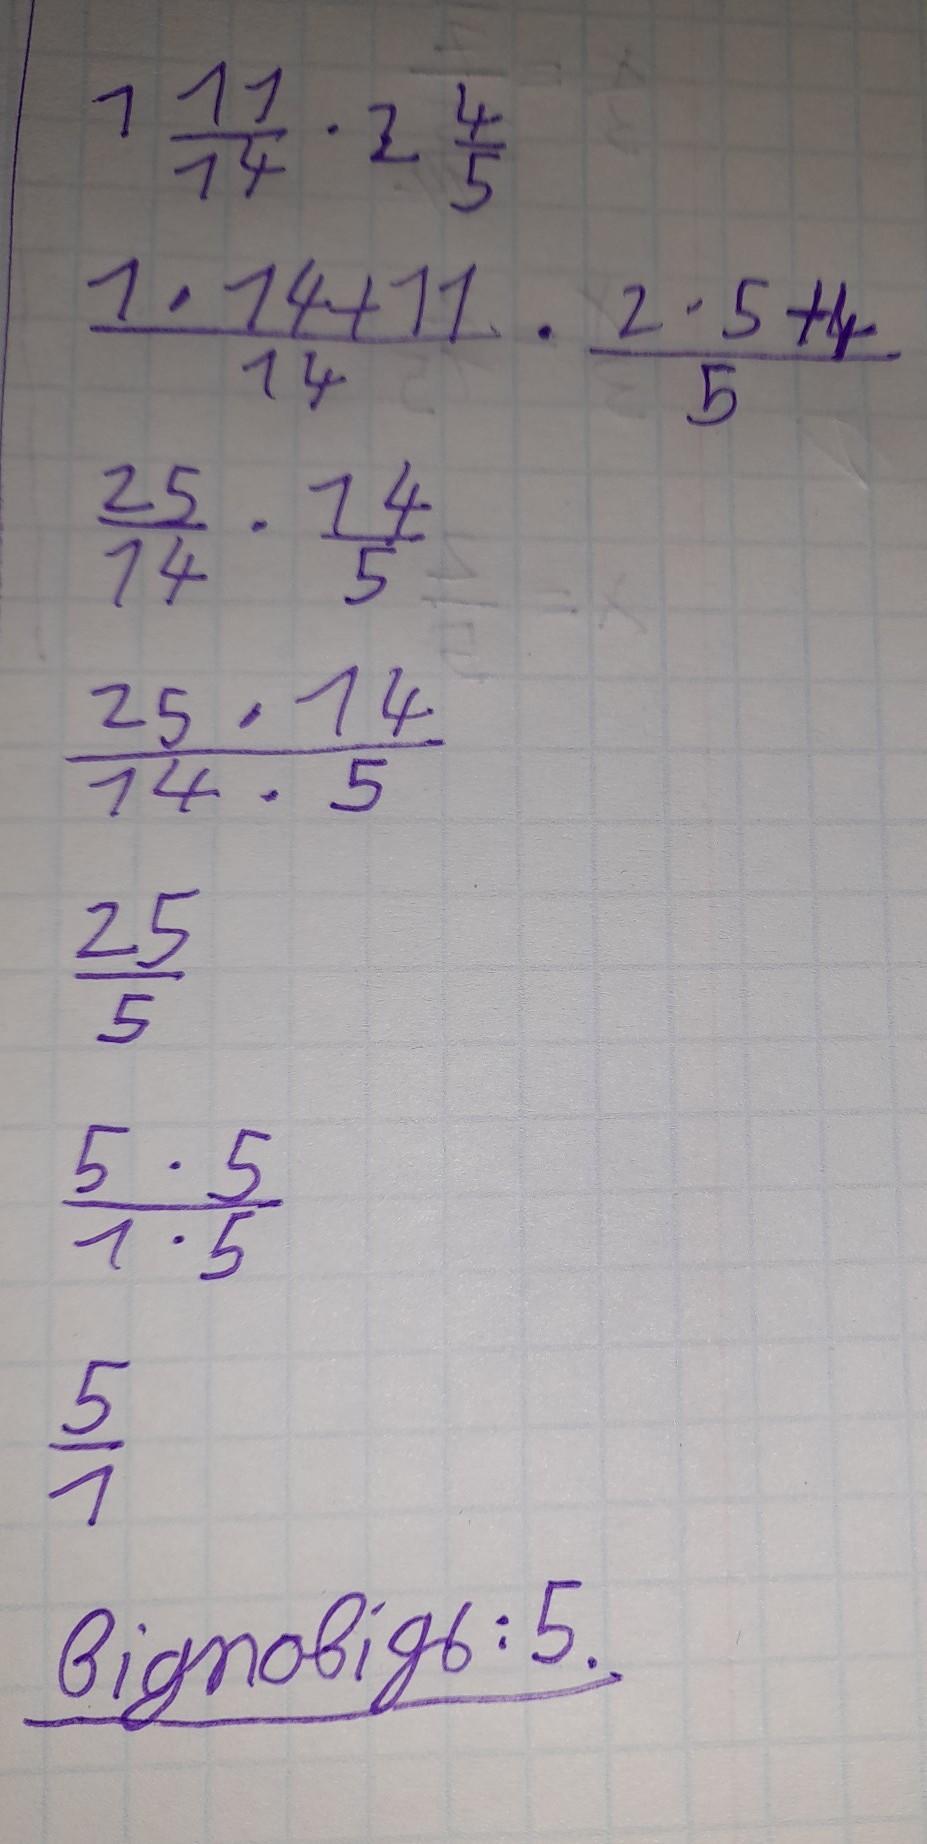 1 11/14 · 2 4/5
1 · 14 + 11 / 14 · 2 · 5 + 4 / 5
25/14 · 14/5
25 · 14 / 14 · 5
25/5
5 · 5 / 1 · 5
5/1
Відповідь: 5.